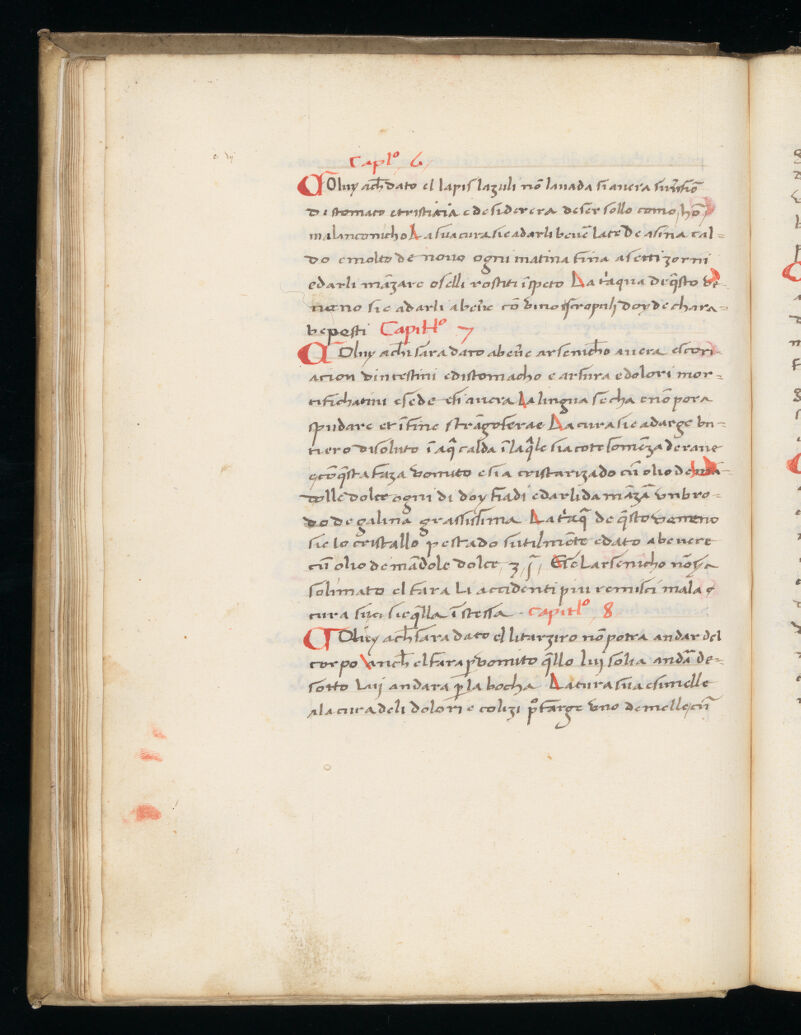 Caplo 6
Oluy ach dato el lapis lazuli nō lauada si auera
di stomaco e tristitia e desiderera de ser sollo como hō
malanconicho La sua cura sie adarli beuē late de asina cal-
do e molto de nouo ogni matina fina a setti zorni
e darli māzare oselli rostiti ī speto La tiaqua di q̄sto ve-
neno sie a darli abeuē cō vino scropuli doy de chara-
be pesti Capitlo 7
Oluy ach sara dato abeuē arsenicho auera escori-
acion dintestini e distomacho e arsura e dolori mor-
tifichatiui e sede e li auera La lingua secha e nō pora
spudare et ī fine strāgoserae La cura sie adarge bu-
tiero disoluto ī aq̄ calda ī la q̄le sia coto somēza de raue
e cō q̄sta faza vomito e sia cristarizado cū olio de mā
dolle dolce ogni di doy fiadi e darli da māzar vn bro-
do de galina grassissima La tiaq̄ de q̄sto veneno
sie lo cristallo pestado sutilmēte e dato abeuere
cū olio de mādole dolce ʒ j E se l arsenicho nō sia
solimato el fara li accidenti piu remissi ma la
cura sua sie q̄lla īstessa capitlo 8
Oluy ach sara dato el litarziro nō potra andar del
corpo Anch el fara p vomito q̄llo luj solia andā de-
sotto Luj andara p la bocha La cura sua e simelle
a la cura deli dolori e colizi farge vno de melle cū